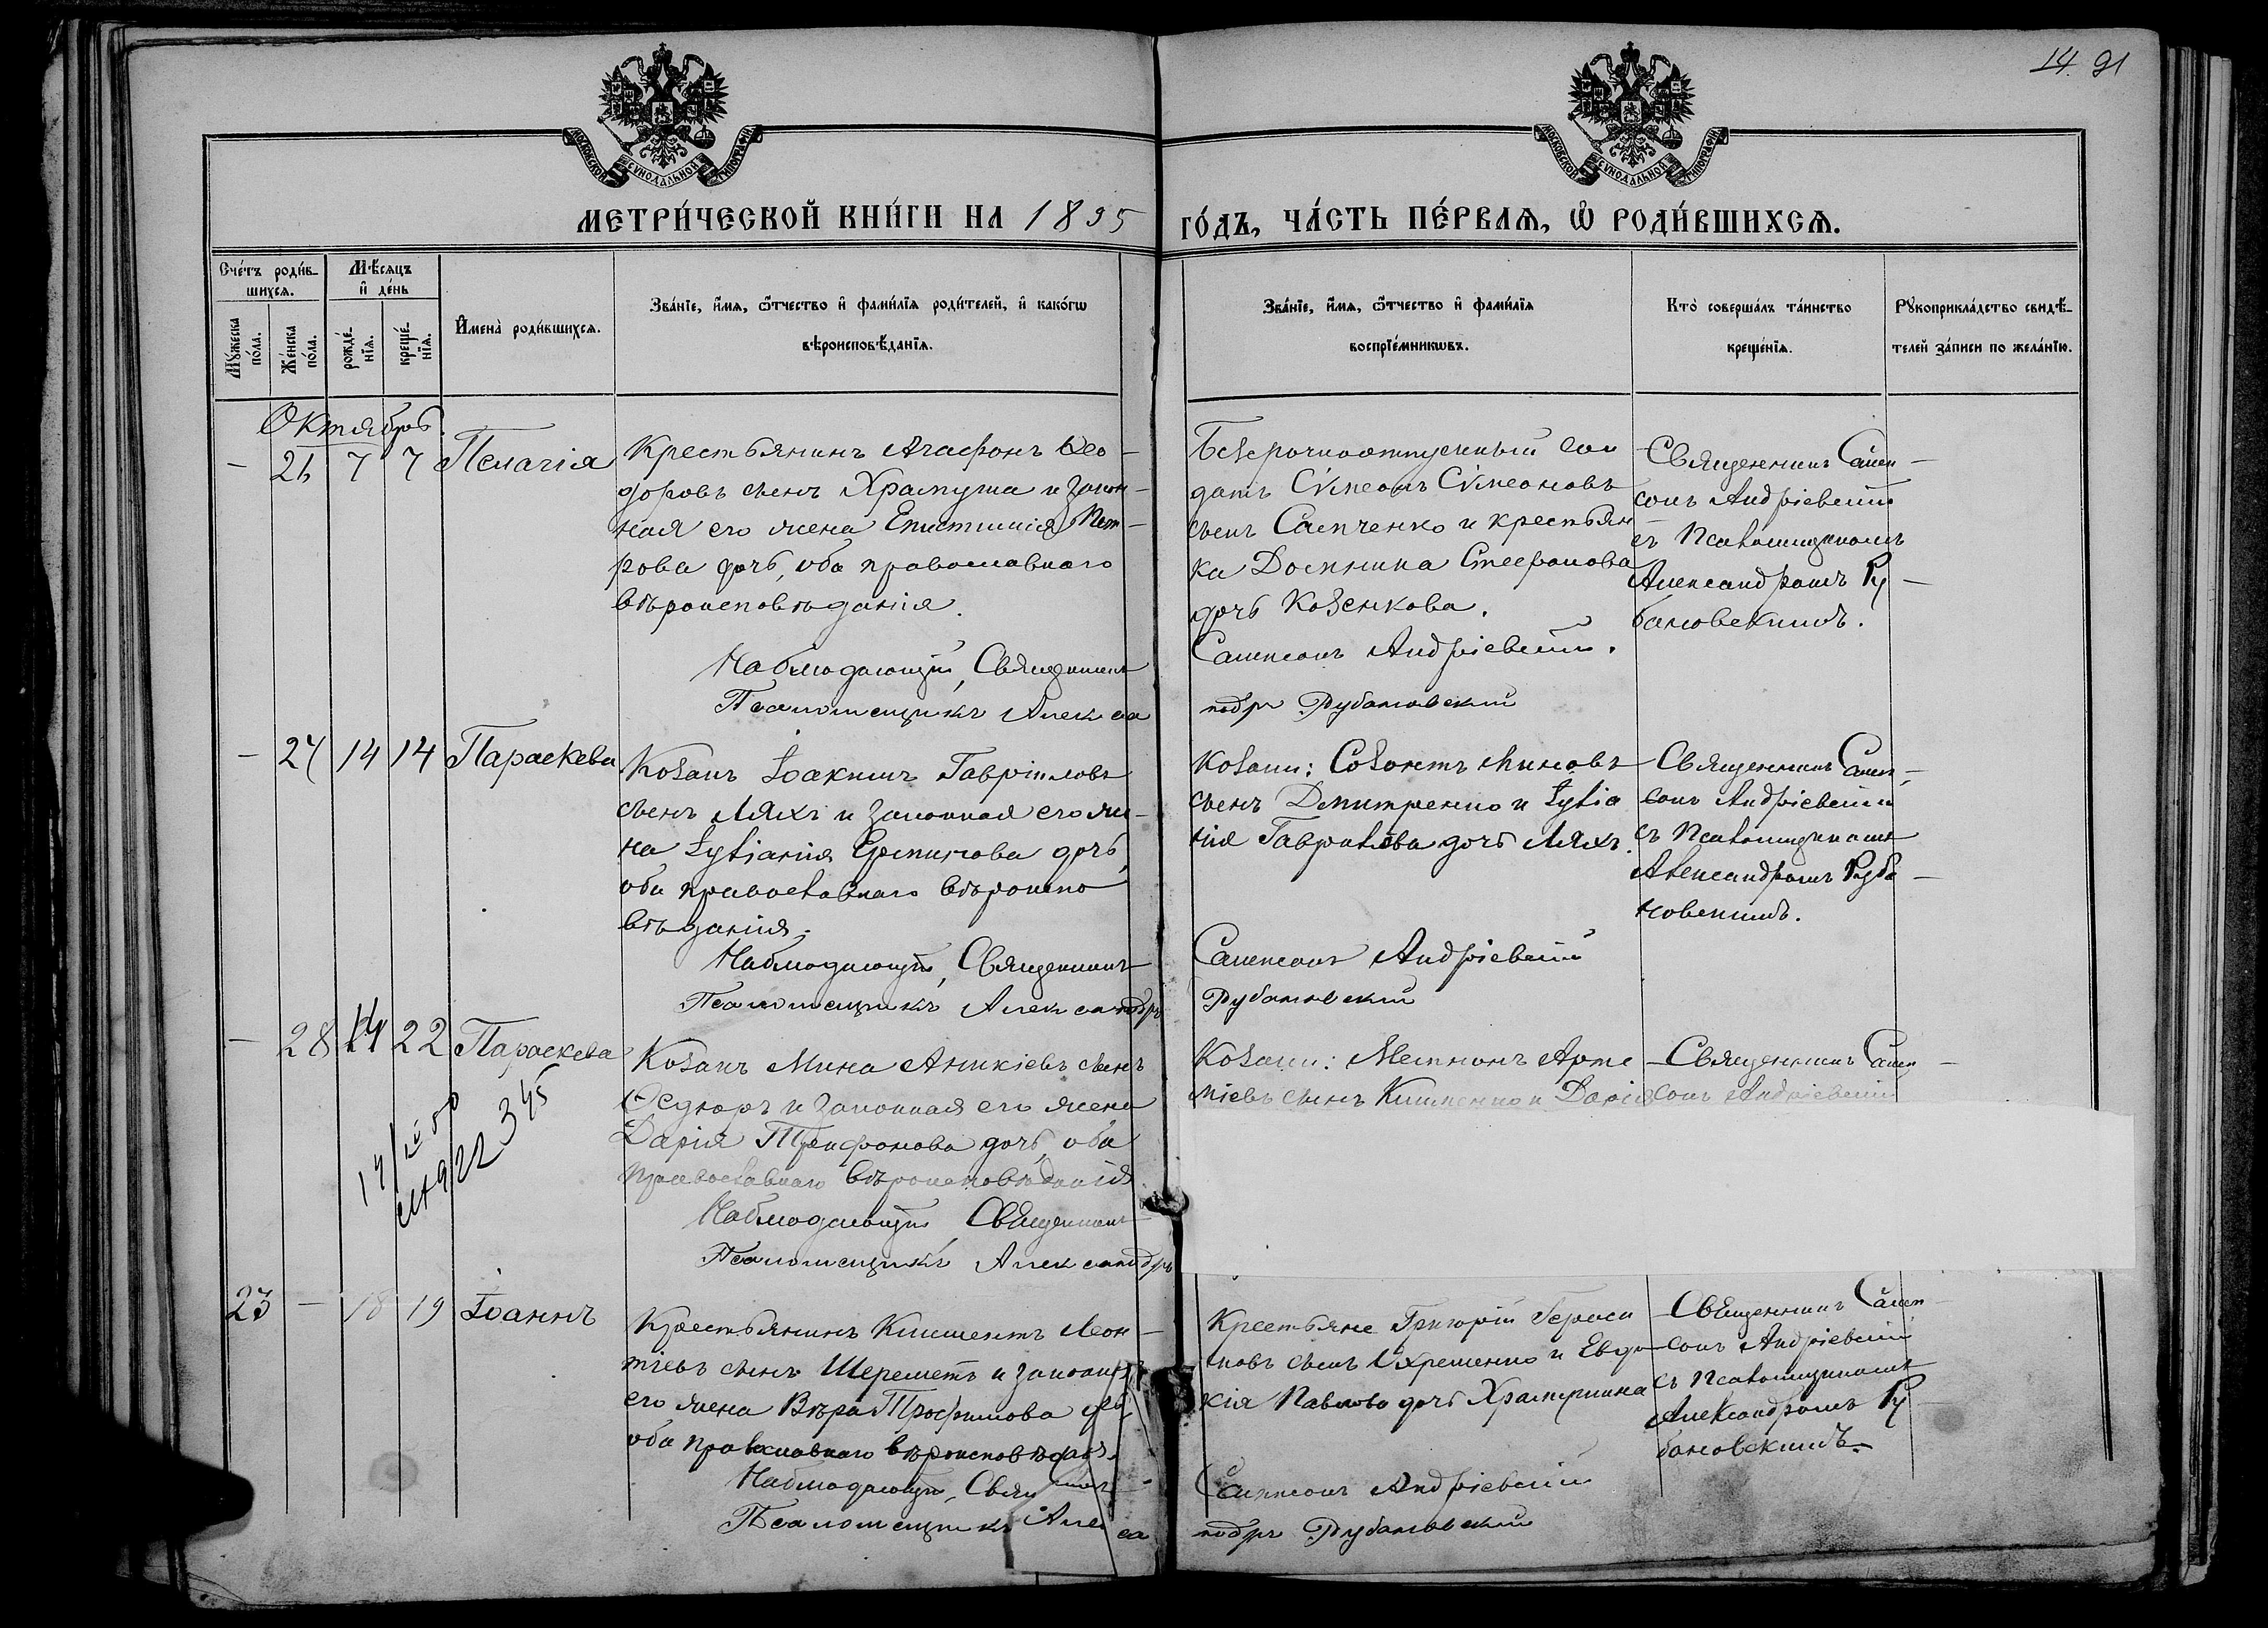 14. 91
МОСКОВСКОЙ СУНОДАЛЬНОЙ ТИПОГРАФІИ
МОСКОВСКОЙ СУНОДАЛЬНОЙ ТИПОГРАФІИ
МЕТРИ́ЧЕСКОЙ КНИ́ГИ НА 1895
ГО́ДЪ, ЧА́СТЬ ПЕ́РВАѦ, Ѡ РОДИ́ВШИХСѦ.
Сче́тъ роди́в-
шихсѧ.
Мѣ́сѧцъ
и҆ де́нь
Мꙋ́жеска
по́ла.
Же́нска
по́ла.
рожде́-
нїѧ.
креще́-
нїѧ.
И҆мена̀ роди́вшихсѧ.
Зва́нїе, и҆́мѧ, ѻ҆́тчество и҆ фами́лїѧ роди́телей, и҆ како́гѡ
вѣроисповѣ́данїѧ.
Зва́нїе, и҆́мѧ, ѻ҆́тчество и҆ фами́лїѧ
воспрїе́мникѡвъ.
Кто̀ соверша́лъ та́инство
креще́нїѧ.
Рꙋкоприкла́дство свидѣ́-
телей за́писи по жела́нїю.
Октябрь.
- 26 7 7 Пелагія
Крестьянинъ Агафонъ Ѳео-
доровъ сынъ Храпуша и закон-
ная его жена Епистимія Пет-
рова дочь, оба православнаго
вѣроисповѣданія.
Наблюдающій, Священникъ
Псаломщикъ Алекса
Безсрочноотпускный сол
датъ Сѵмеонъ Сѵмеоновъ
сынъ Сапченко и крестьян-
ка Домнина Стефанова
дочь Козенкова.
Сампсонъ Андріевскій.
ндръ Рубановскій
Священникъ Самп-
сонъ Андріевскій
съ Псаломщикомъ
Александромъ Ру-
бановскимъ.
- 27 14 14 Параскева
Козакъ Іоакимъ Гавріиловъ
сынъ Ляхъ и законная его же-
на Іуліанія Ерминова дочь,
оба православнаго вѣроиспо
вѣданія.
Наблюдающій, Священникъ
Псаломщикъ Александръ
Козаки: Созонтъ Миновъ
сынъ Дмитренко и Іуліа
нія Гавриилова дочь Ляхъ.
Сампсонъ Андріевскій
Рубановскій
Священникъ Самп-
сонъ Андріевскій
съ Псаломщикомъ
Александромъ Руба-
новскимъ.
- 28 14 22 Параскева
Козакъ Мина Аникіевъ сынъ
Ѳедюръ и законная его жена
Дарія Трифонова дочь, оба
православнаго вѣроисповѣданія
Наблюдающій, Священникъ
Псаломщикъ Александръ
Козаки: Артe
міевъ сынъ и Дарія
Священникъ Самп-
сонъ Андріевскій
345
23 - 18 19 Іоаннъ
Крестьянинъ Климентъ Леон-
тіевъ сынъ Шереметъ и законная
его жена Вѣра Трофимова дочь
оба православнаго вѣроисповѣдан.
Наблюдающій, Священникъ
Псаломщикъ Алекса
Крестьяне Григорій Гераси
мовъ сынъ Охрименко и Евдо
кія Павлова дочь Храпушина
Сампсонъ Андріевскій
ндръ Рубановскій
Священникъ Самп-
сонъ Андріевскій
съ Псаломщикомъ
Александромъ Ру-
бановскимъ.